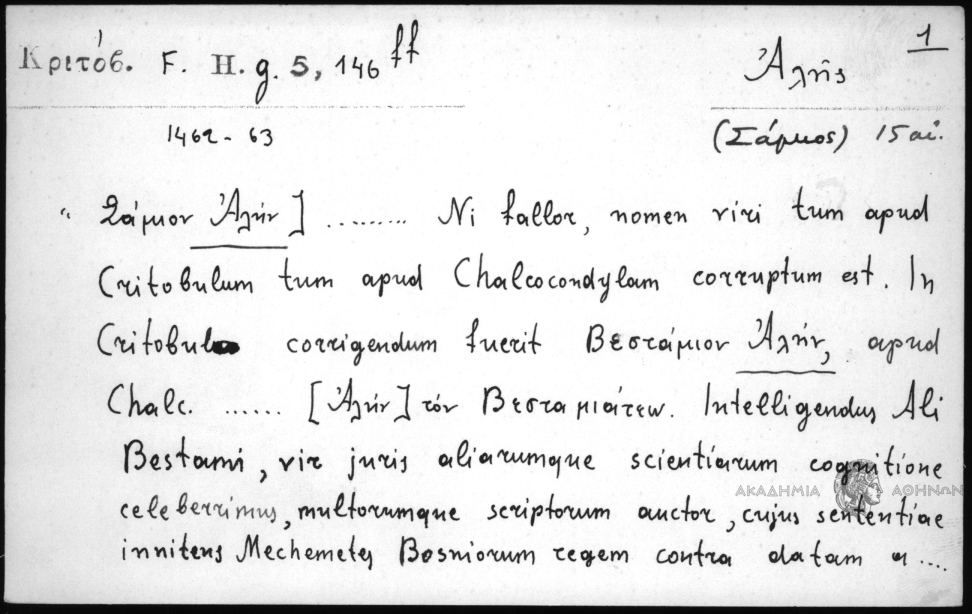 1
Κριτόβ. F. H. g. 5, 146 ff
Ἀλῆς
1462 - 63
(Σάμιος) 15 αἰ.
" Σάμιον Ἀλήν] ......... Ni fallor, nomen viri tum apud
Critobulum tum apud Chalcocondylam corruptum est. In
Critobulo corrigendum fuerit Βεστάμιον Ἀλήν, apud
Chalc. ...... [Ἀλήν] τόν Βεσταμιάτεω. Intelligendus Ali
Bestami, vir juris aliarumque scientiarum cognitione
ΑΚΑΔΗΜΙΑ ΑΘΗΝΩΝ
celeberrimus, multorumque scriptorum auctor, cujus sententiae
innitens Mechemetes Bosniorum regem contra datam